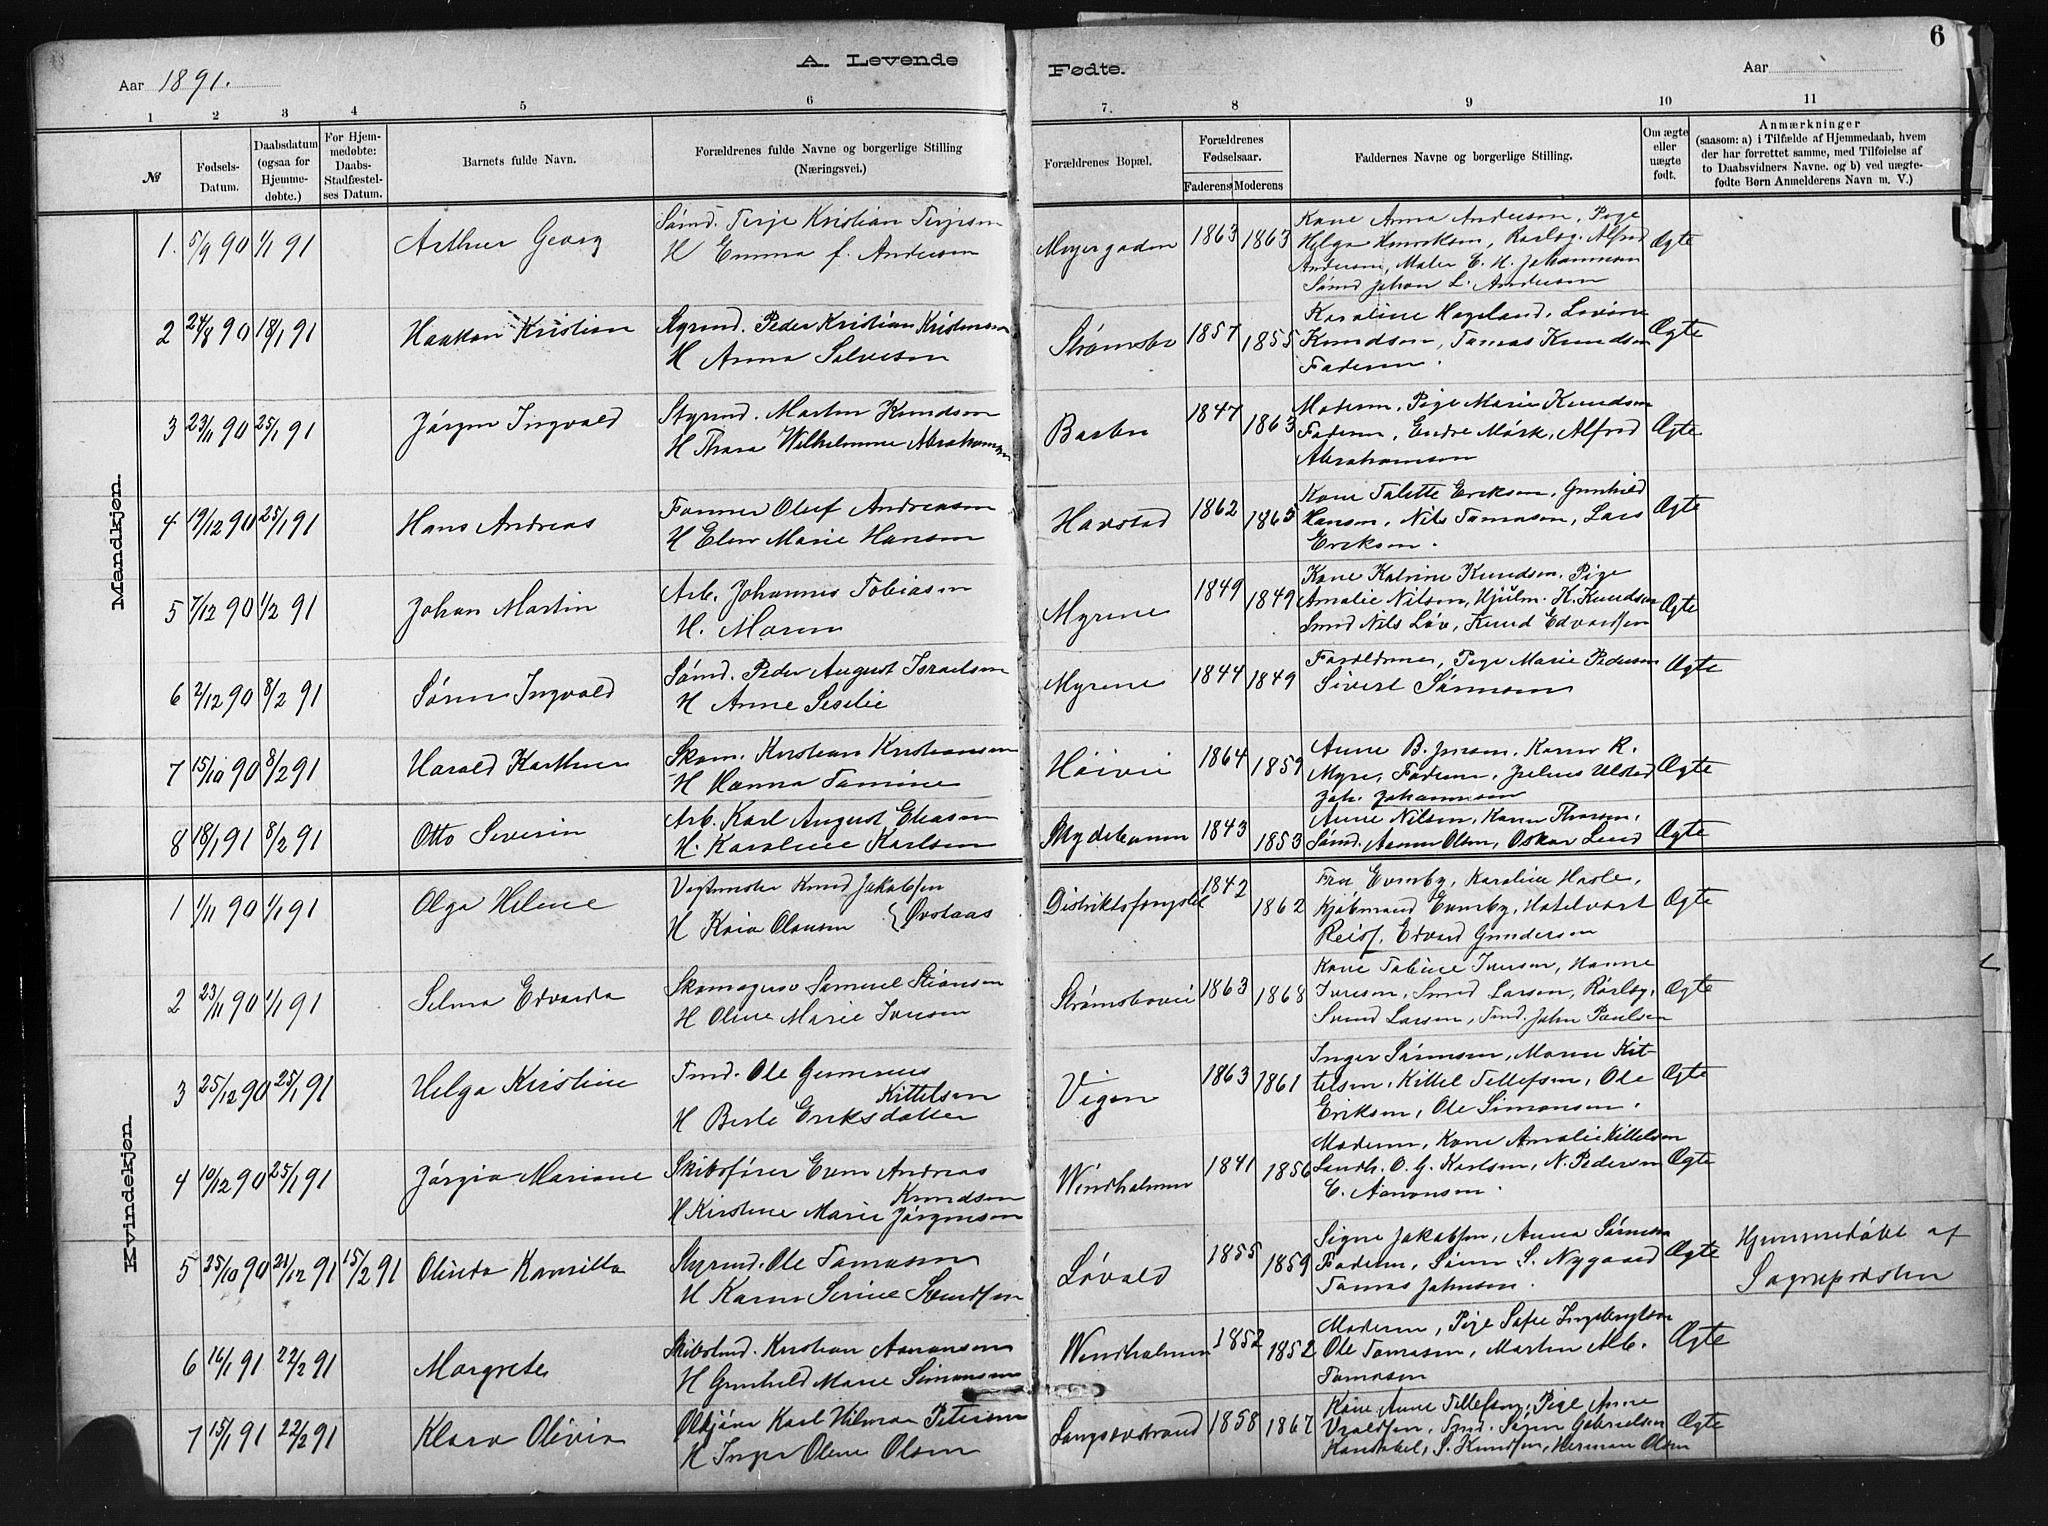 6
Aar 1891.
A. Levende
Fødte.
Aar
1 2 3 4 5 6 7. 8 9 10 11
№
Fødsels-Datum.
Daabsdatum (ogsaa for Hjemmedøbte.)
For Hjemmedøbte: Daabs-Stadfæstelses Datum.
Barnets fulde Navn.
Forældrenes fulde Navne og borgerlige Stilling
(Næringsvei.)
Forældrenes Bopæl.
Forældrenes Fødselsaar.
Faderens Moderens
Faddernes Navne og borgerlige Stilling.
Om ægte eller uægte født.
Anmærkninger
(saasom: a) i Tilfælde af Hjemmedaab, hvem
der har forrettet samme, med Tilføielse af
to Daabsvidners Navne. og b) ved uægte-
fødte Børn Anmelderens Navn m. V.)
Mandkjøn.
1. 5/9 90 1/1 91 Arthur Georg
Sømd. Terje Kristian Terjesen
H Emma f. Andersen
Myrgaden 1863 1863
Kone Anna Andersen, Pige
Helga Henriksen, Alfred
Andersen, Maler C. H. Johannesen
Sømd Johan L. Andersen
Ægte
2 24/8 90 18/1 91 Haakon Kristian
Styrmd. Peder Kristian Kristensen
H Anna Salvesen
Strømsbo 1857 1855
Karoline Hageland, Lovine
Knudsen, Tomas Knudsen
Faderen.
Ægte
3 23/11 90 25/1 91 Jørgen Ingvald
Styrmd. Martin Knudsen
H Thora Wilhelmine Abrahamsen
Barbu 1847 1863
Moderen, Pige Marie Knudsen
Faderen, Endre Mørk, Alfred
Abrahamsen
Ægte
4 19/12 90 25/1 91 Hans Andreas
Former Oluf Andreasen
H Elen Marie Hansen
Havstad 1862 1865
Kone Talette Eriksen, Gunhild
Hansen, Nils Tomasen, Lars
Eriksen.
Ægte
5 7/12 90 1/2 91 Johan Martin
Arb. Johannes Tobiasen
H. Maren
Myrene 1849 1849
Kone Katrine Knudsen, Pige
Amalie Nilsen, Hjulm. K. Knudsen
Smed Nils Løv, Knud Edvardsen
Ægte
6 2/12 90 8/2 91 Søren Ingvald
Sømd. Peder August Israelsen
H Anne Sesilie
Myrene 1844 1849
Forældrene, Pige Marie Pedersen
Sivert Sørensen
Ægte
7 15/10 90 8/2 91 Harald Karthun
Skom. Kristian Kristiansen
H Hanna Tomine
Høivei 1864 1859
Anne B. Jensen, Karen R.
Myre, Faderen, Julius Ulstad
Joh. Johannesen
Ægte
8 18/1 91 8/2 91 Otto Severin
Arb. Karl August Eliasen
H. Karoline Karlsen
1843 1853
Anne Nilsen, Karen Thorsen,
Sømd. Aanon Olsen, Oskar Lund
Ægte
Kvindekjøn.
1 1/11 90 1/1 91 Olga Helene
Vagtmester Knud Jakobsen
H Kaia Olausen } Øvstaas
Distriktsfængslet 1842 1862
Fru Evensby, Karoline Hasle,
Kjøbmand Evensby, Hotelvært
Reiss, Edvard Gundersen
Ægte
2 23/11 90 1/1 91 Selma Edvarda
Skomager Samuel Stiansen
H Oline Marie Iversen
Strømsbovei 1863 1868
Kone Tobine Iversen, Hanne
Iversen, Smed Larsen,
Svend Larsen, Tmd. John Paulsen
Ægte
3 25/12 90 25/1 91 Helga Kristine
Tmd. Ole Gunerius
Kittelsen
H Berte Eriksdatter
Vigen 1863 1861
Inger Sørensen, Maren Kit-
telsen, Kittel Tellefsen, Ole
Eriksen, Ole Simonsen.
Ægte
4 10/12 90 25/1 91 Jørgia Mariane
Skibsfører Even Andreas
Knudsen
H Kirstine Marie Jørgensen
Windholmen 1841 1856
Moderen, Kone Amalie Kittelsen
Landh. O. G. Karlsen, N. Pedersen
C. Aanonsen.
Ægte
5 25/10 90 21/12 91 15/2 91 Olinda Kamilla
Styrmd. Ole Tomassen
H Karen Serine Svendsen
Løvold 1855 1859
Signe Jakobsen, Anna Sørensen
Faderen, Søren S. Nygaard
Tomas Johnsen.
Ægte
Hjemmedøbt af
Sognepræsten
6 16/1 91 22/2 91 Margrete
Skibstmd. Kristian Aanonsen
H Gunhild Marie Simonsen
Windholmen 1852 1852
Moderen, Pige Sofie Ingebregtsen
Ole Tomasen, Martin Alb.
Tomasen
Ægte
7 15/1 91 22/2 91 Klara Olivia
Karl Hilmar Petersen
H Inger Oline Olsen
Langsævstrand 1858 1867
Kone Anne Tellefsen, Pige Anne
Tmd. Søren Gabrielsen
S. Knudsen, Herman Olsen
Ægte